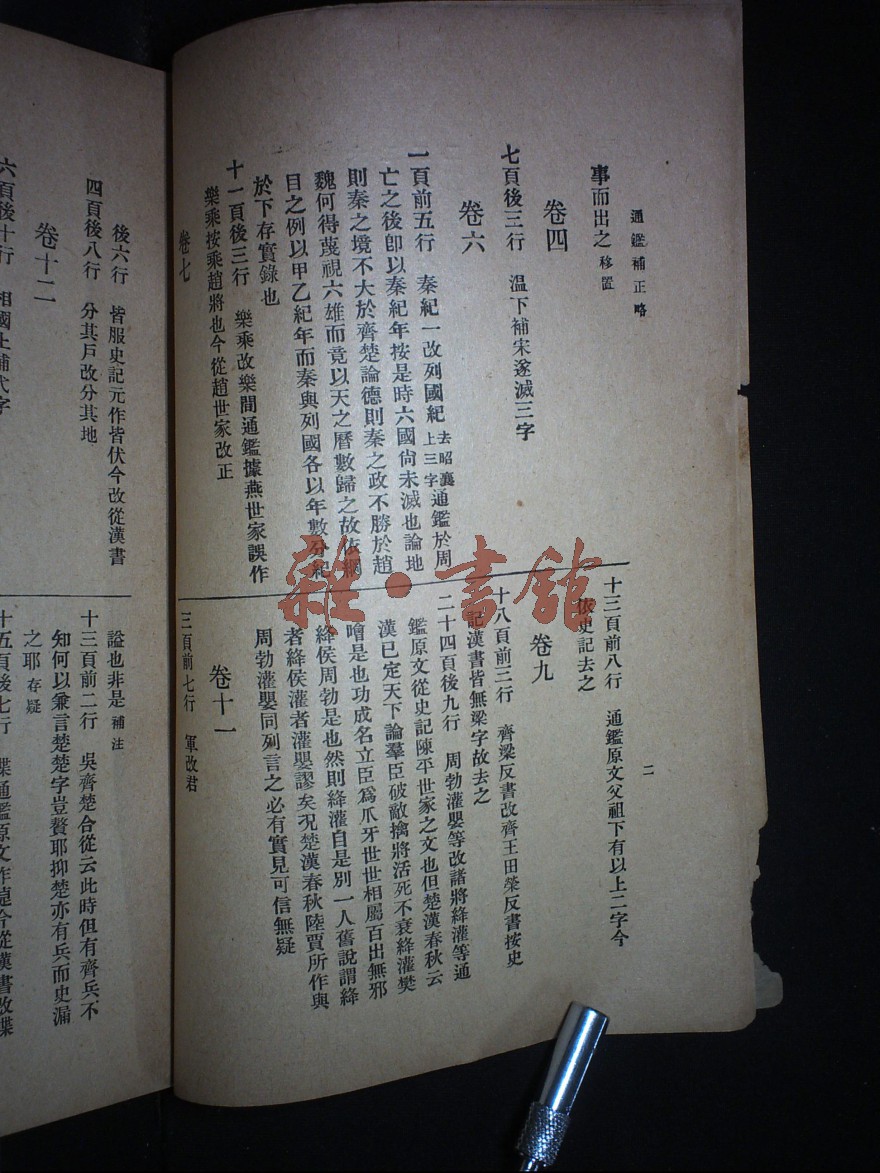 通鑑補正略
事而出之 移置
卷四
七頁後三行　溫下補宋遂滅三字
卷六
一頁前五行　秦紀一改列國紀 去昭襄上三字 通鑑於周
亡之後卽以秦紀年按是時六國尙未滅也論地
則秦之境不大於齊楚論德則秦之政不勝於趙
魏何得蔑視六雄而竟以天之曆數歸之故依綱
目之例以甲乙紀年而秦與列國各以年數分紀
於下存實錄也
十一頁後三行　樂乘改樂間通鑑據燕世家誤作
樂乘按乘趙將也今從趙世家改正
卷七
十三頁前八行　通鑑原文父祖下有以上二字今
依史記去之
卷九
十八頁前三行　齊梁反書改齊王田榮反書按史
記漢書皆無梁字故去之
二十四頁後九行　周勃灌嬰等改諸將絳灌等通
鑑原文從史記陳平世家之文也但楚漢春秋云
漢已定天下論羣臣破敵擒將活死不衰絳灌樊
噲是也功成名立臣爲爪牙世世相屬百出無邪
絳侯周勃是也然則絳灌自是別一人舊說謂絳
者絳侯灌者灌嬰謬矣況楚漢春秋陸賈所作與
周勃灌嬰同列言之必有實見可信無疑
卷十一
三頁前七行　軍改君
二
後六行　皆服史記元作皆伏今改從漢書
四頁後八行　分其戶改分其地
卷十二
六頁後十行　相國上補代字
謚也非是 補注
十三頁前二行　吳齊楚合從云此時但有齊兵不
知何以兼言楚楚字豈贅耶抑楚亦有兵而史漏
之耶 存疑
十五頁後七行　通鑑原文作 今從漢書改
雜·書館